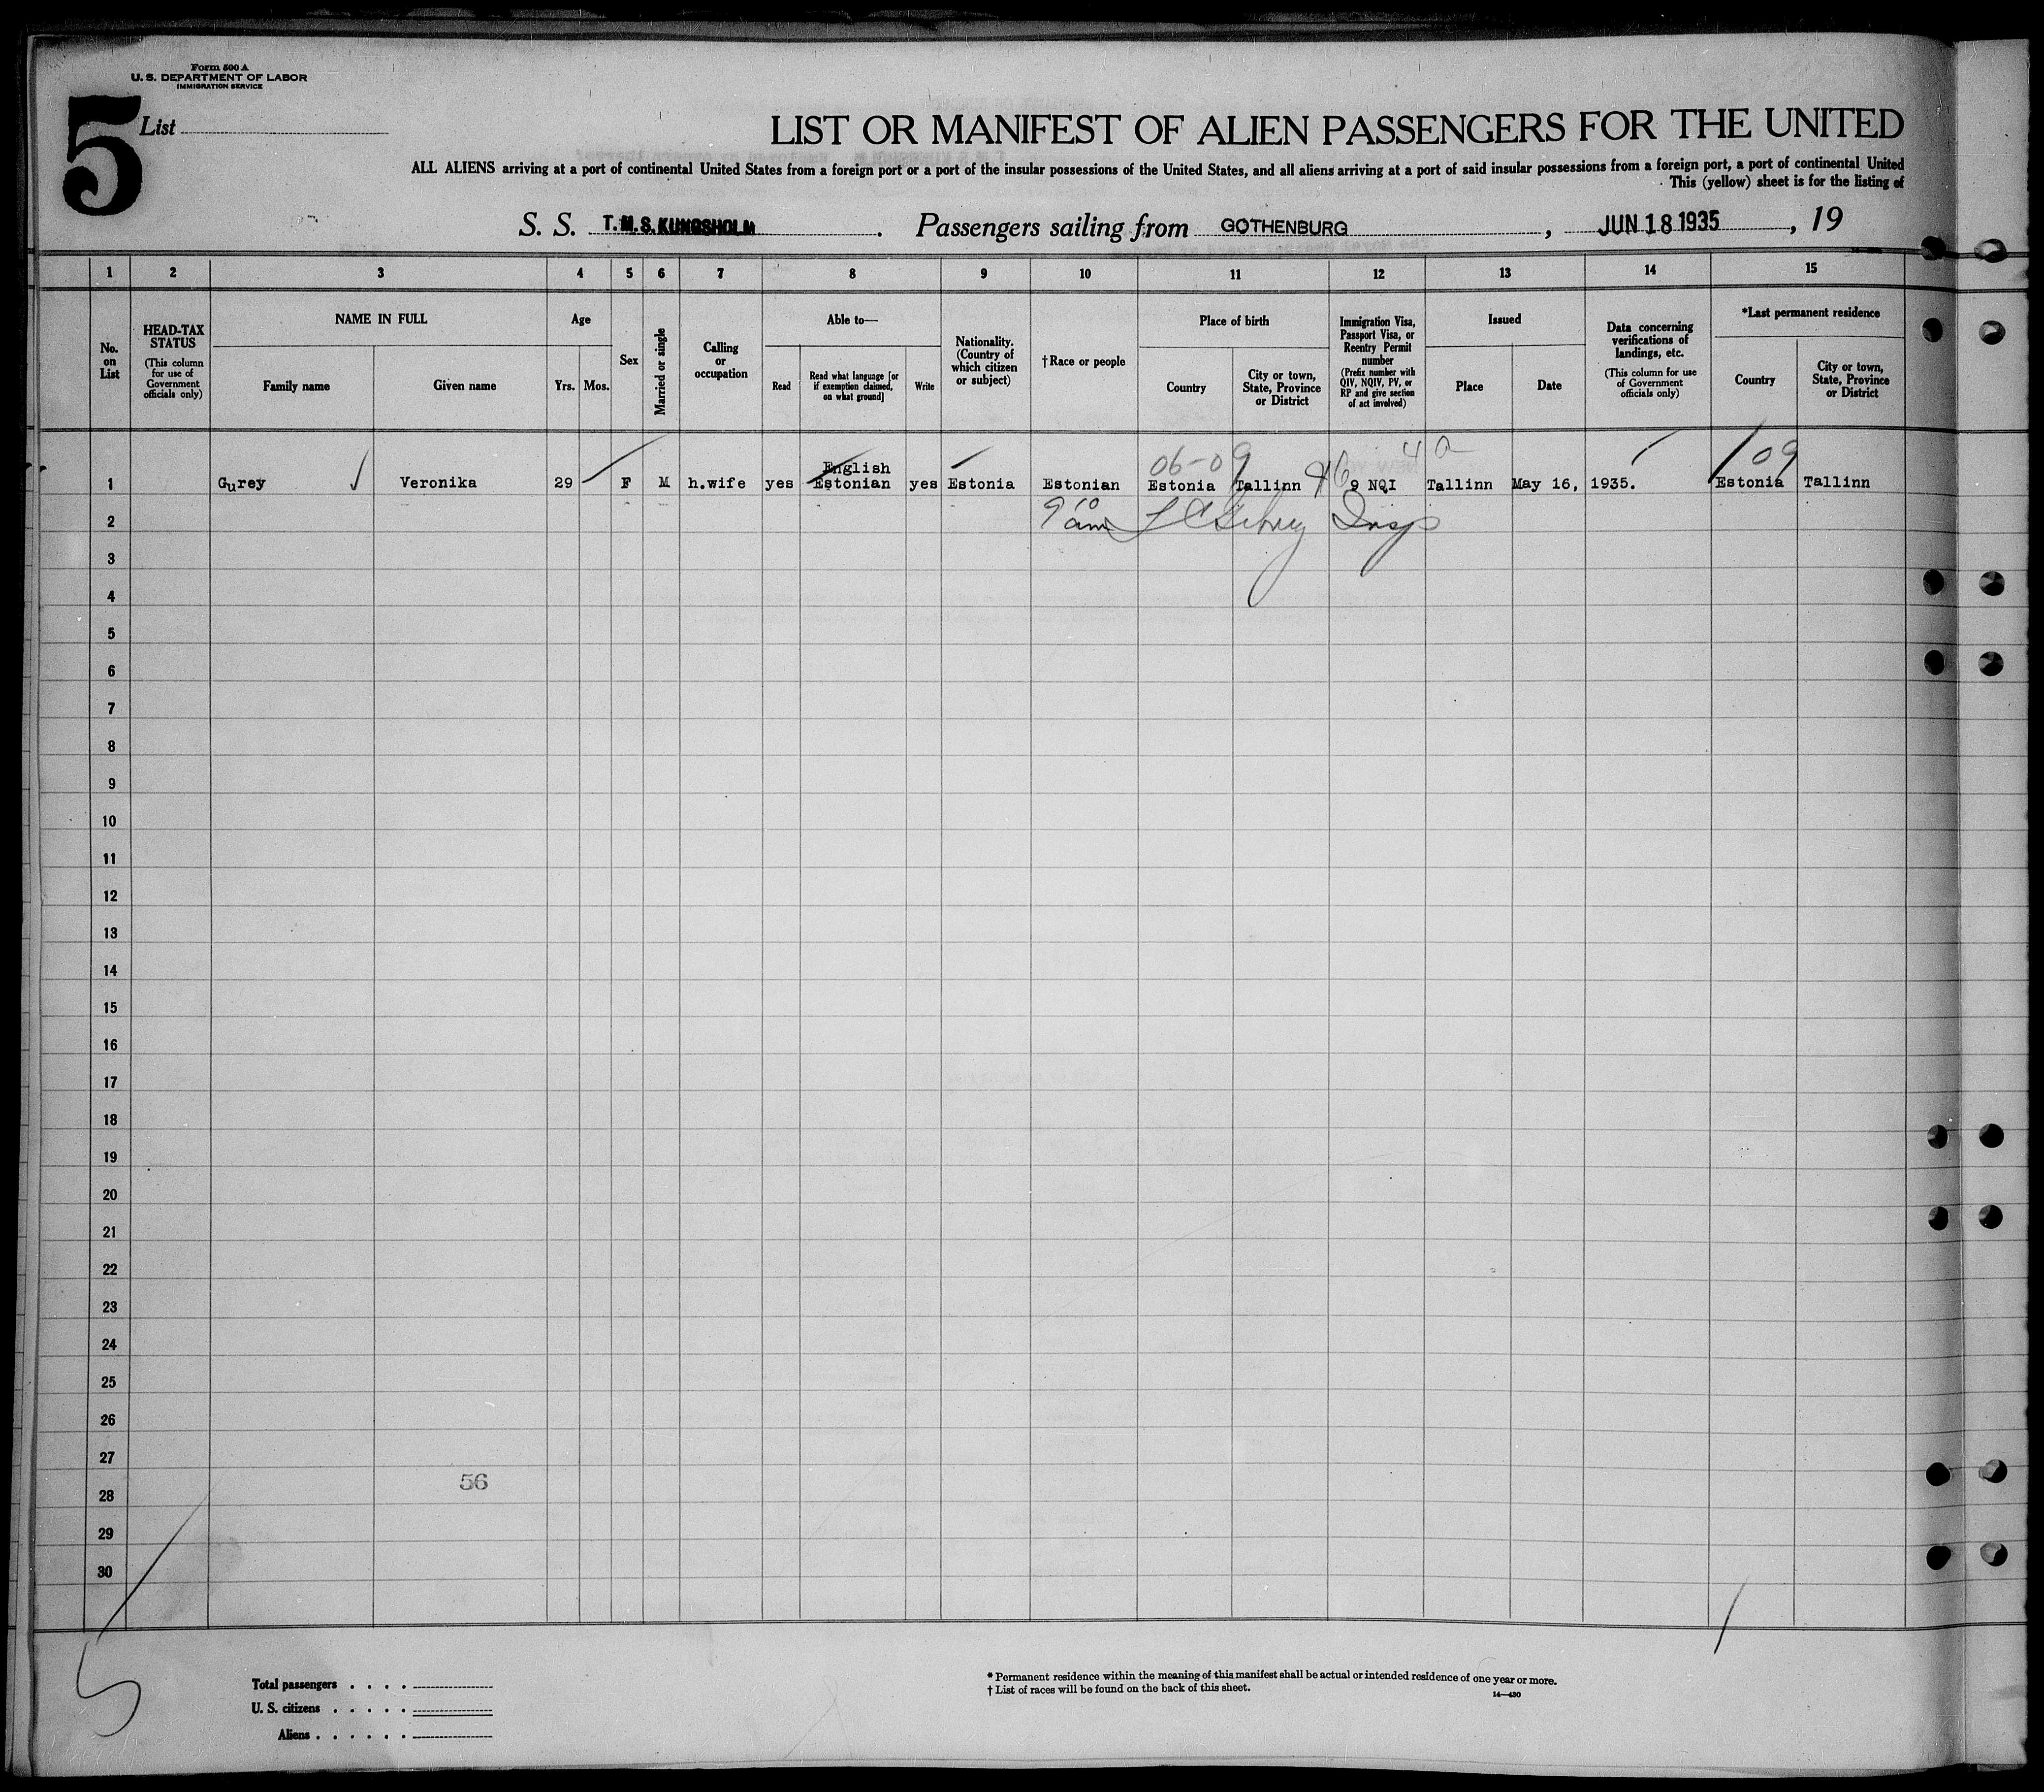 Form 500 A
U. S. DEPARTMENT OF LABOR
IMMIGRATION SERVICE
5
List
LIST OR MANIFEST OF ALIEN PASSENGERS FOR THE UNITED
ALL ALIENS arriving at a port of continental United States from a foreign port or a port of the insular possessions of the United States, and all aliens arriving at a port of said insular possessions from a foreign port, a port of continental United
This (yellow) sheet is for the listing of
S. S. T.M.S. KUNGSHOLM. Passengers sailing from GOTHENBURG, JUN 18 1935, 19
1 2 3 4 5 6 7 8 9 10 11 12 13 14 15
No. on List
HEAD-TAX STATUS
(This column for use of Government officials only)
NAME IN FULL
Family name
Given name
Age
Yrs. Mos.
Sex
Married or single
Calling or occupation
Able to—
Read
Read what language [or if exemption claimed, on what ground]
Write
Nationality. (Country of which citizen or subject)
†Race or people
Place of birth
Country
City or town, State, Province or District
Immigration Visa, Passport Visa, or Reentry Permit number
(Prefix number with QIV, NQIV, PV, or RP and give section of act involved)
Issued
Place
Date
Data concerning verifications of landings, etc.
(This column for use of Government officials only)
*Last permanent residence
Country
City or town, State, Province or District
06-09 4a 109
English
1 Gurey Veronika 29 F M h.wife yes Estonian yes Estonia Estonian Estonia Tallinn 9 NQI Tallinn May 16, 1935. Estonia Tallinn
2 Insp
3
4
5
6
7
8
9
10
11
12
13
14
15
16
17
18
19
20
21
22
23
24
25
26
27
56
28
29
30
5
Total passengers . . . .
U. S. citizens . . . . .
Aliens . . . . . . .
* Permanent residence within the meaning of this manifest shall be actual or intended residence of one year or more.
† List of races will be found on the back of this sheet.
14—430